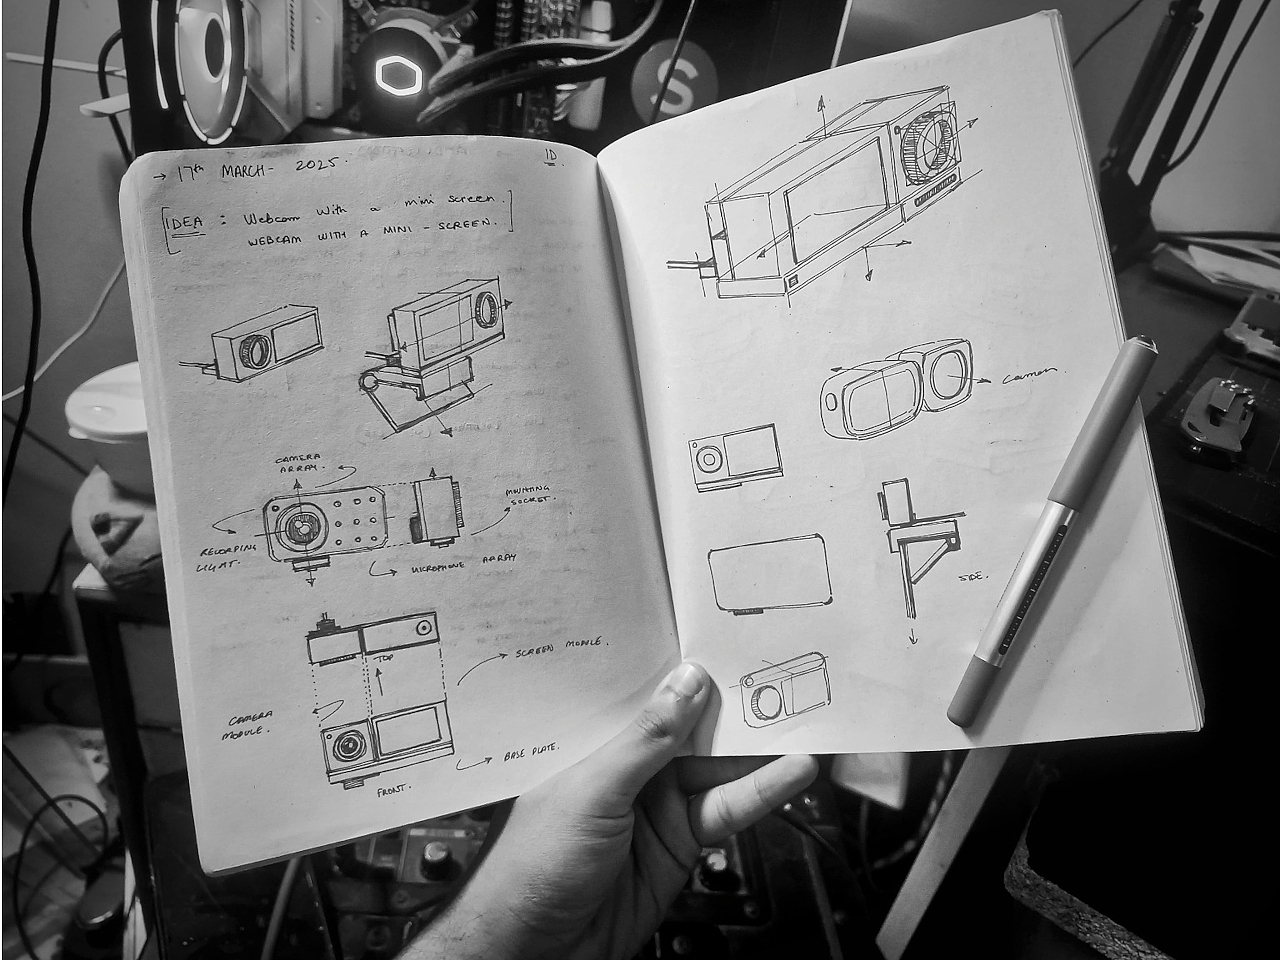 → 17th MARCH - 2025.
ID.
[IDEA : Webcam with a mini screen.
WEBCAM WITH A MINI - SCREEN.]
CAMERA
ARRAY.
MOUNTING
SOCKET.
RECORDING
LIGHT.
MICROPHONE ARRAY
TOP
SCREEN MODULE.
CAMERA
MODULE.
BASE PLATE.
FRONT.
S
Camera
SIDE.